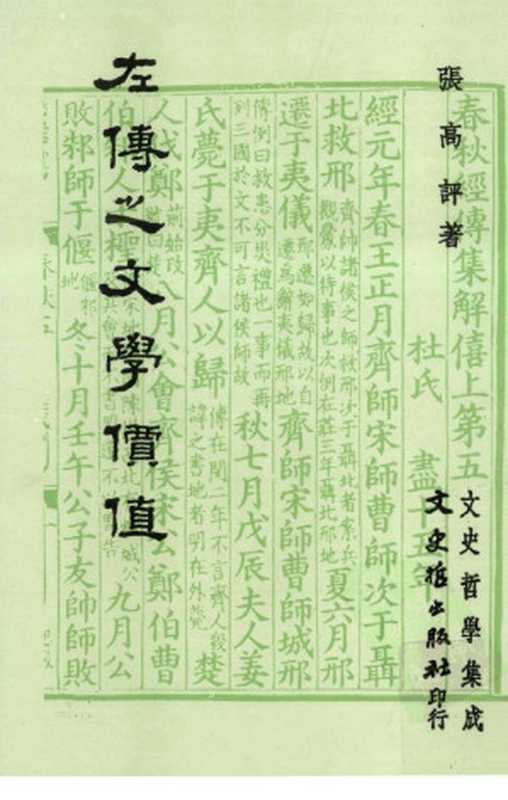 張高評著
文史哲學集成
文史哲出版社印行
左傳之文學價值
春秋經傳集解僖上第五
杜氏 盡十五年
經元年春王正月齊師宋師曹師次于聶
北救邢齊帥諸侯之師救邢次于聶北者案兵
觀釁以待事也次例在莊三年聶北邢地夏六月邢
遷于夷儀邢遷如歸故以自
遷為辭夷儀邢地齊師宋師曹師城邢
傳例曰救患分災禮也一事而再
列三國於文不可言諸侯師故秋七月戊辰夫人姜
氏薨于夷齊人以歸傳在閔二年不言齊人殺
諱之書地者明在外薨楚
人伐鄭 八月公會齊侯宋公鄭伯曹
伯 人 九月公
敗邾師于偃 冬十月壬午公子友帥師敗